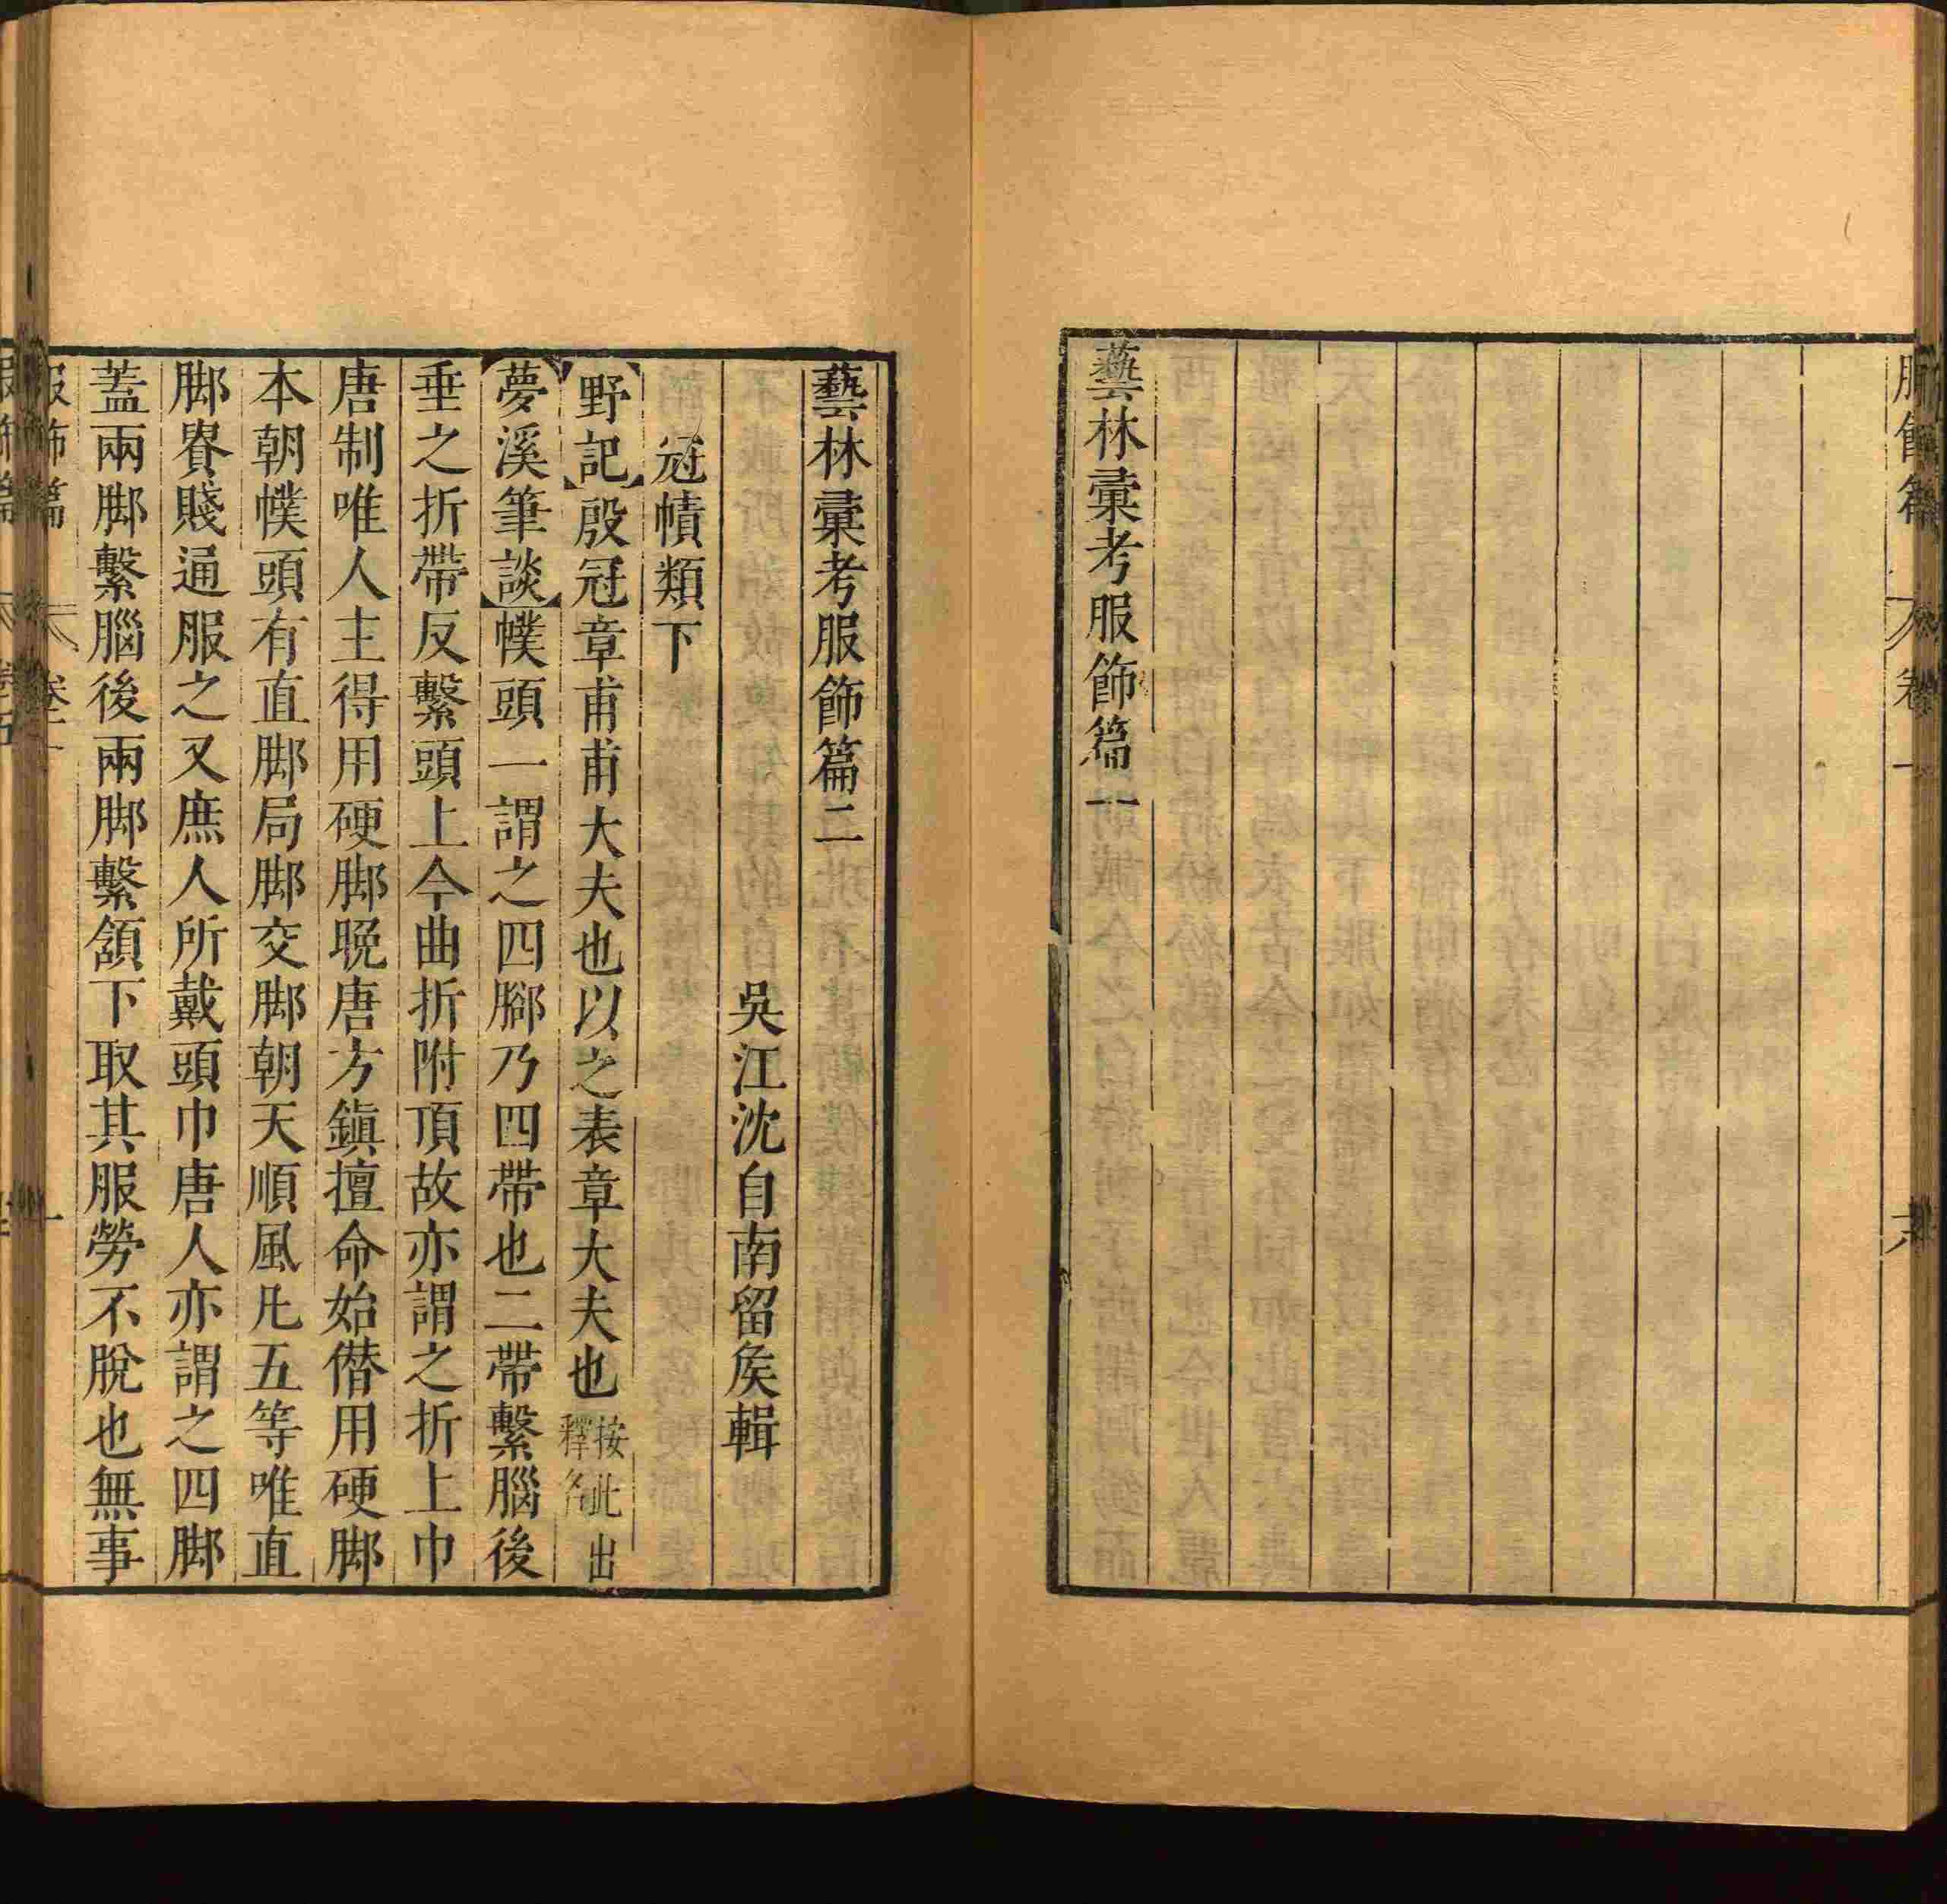 服飾篇 卷一 六
藝林彙考服飾篇一
藝林彙考服飾篇二
吳江沈自南留矦輯
冠幘類下
【野記】殷冠章甫甫大夫也以之表章大夫也按此出釋名
【夢溪筆談】幞頭一謂之四腳乃四帶也二帶繫腦後
垂之折帶反繫頭上令曲折附頂故亦謂之折上巾
唐制唯人主得用硬脚晚唐方鎮擅命始僣用硬脚
本朝幞頭有直脚局脚交脚朝天順風凡五等唯直
脚貴賤通服之又庶人所戴頭巾唐人亦謂之四脚
蓋兩脚繫腦後兩脚繫頷下取其服勞不脫也無事
服飾篇 卷二 一